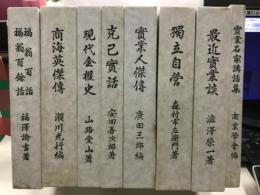 實業名家講話集
商業學會編
最近實業談
澁澤榮一著
獨立自營
森村市左衛門著
實業人傑傳
廣田三郎編
克己實話
安田善次郎著
現代金權史
山路愛山著
商海英傑傳
瀬川光行編
福翁百話
福翁百餘話
福澤諭吉著